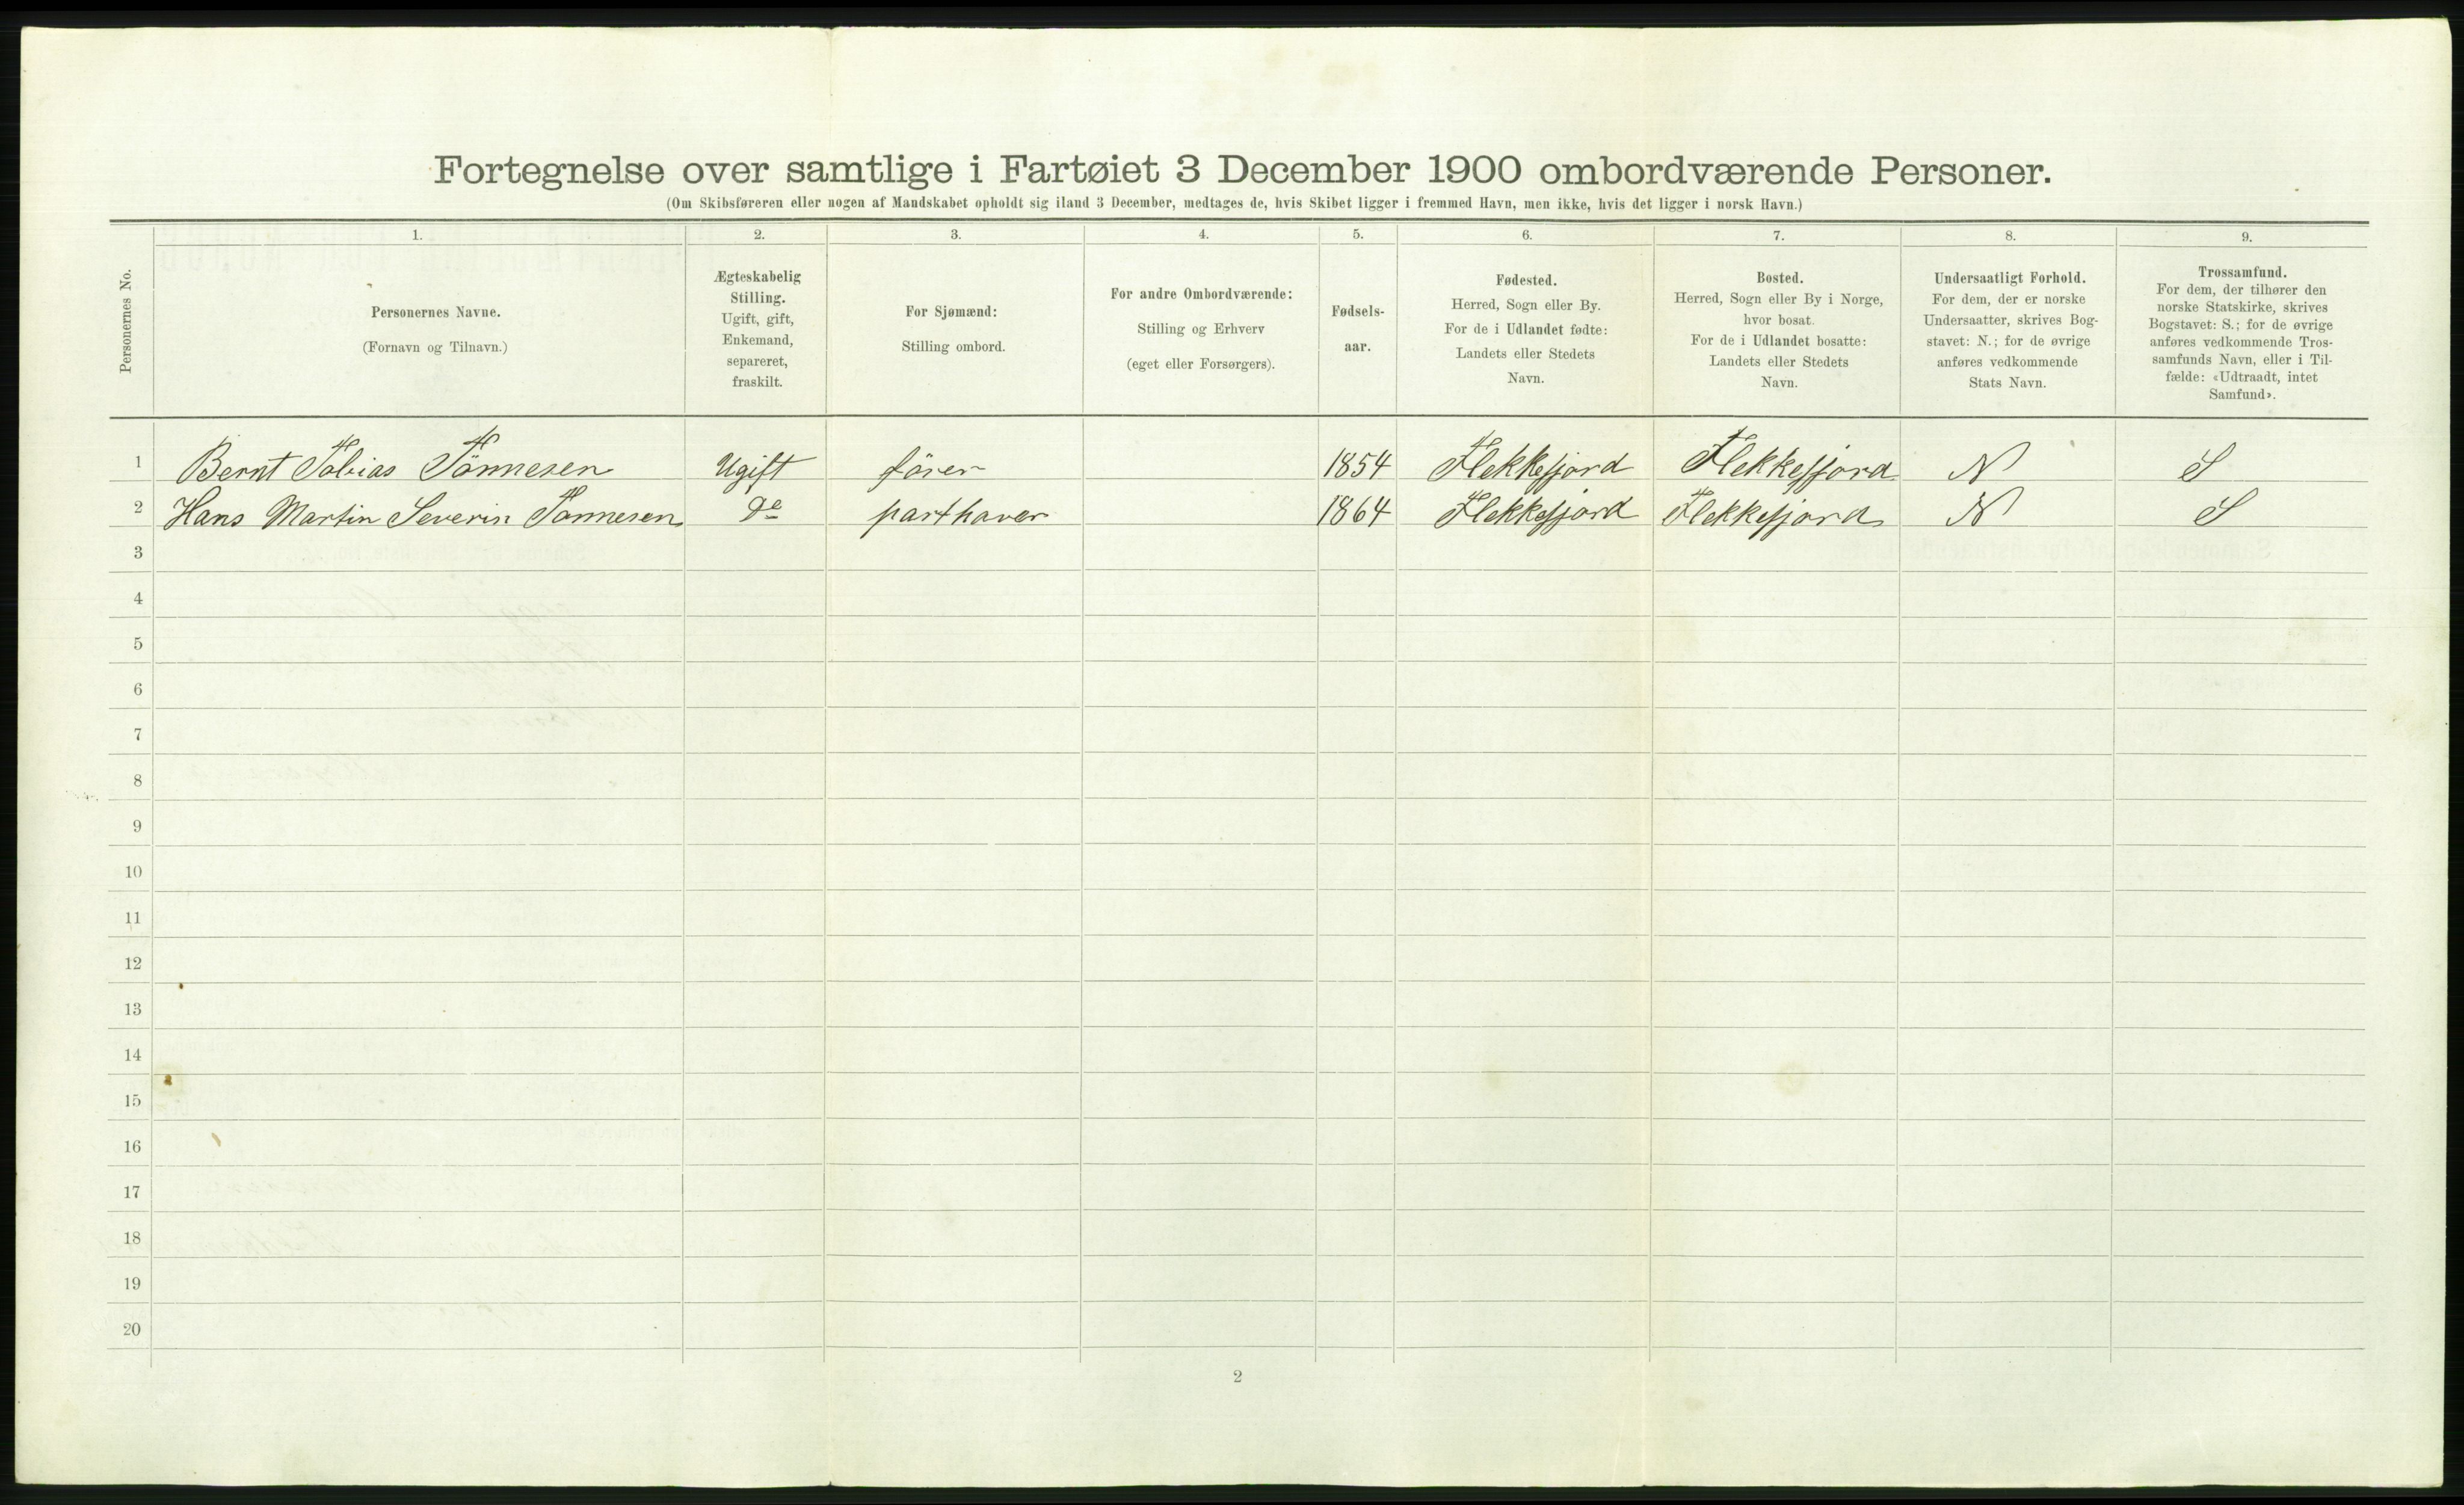 Fortegnelse over samtlige i Fartøiet 3 December 1900 ombordværende Personer.
(Om Skibsføreren eller nogen af Mandskabet opholdt sig iland 3 December, medtages de, hvis Skibet ligger i fremmed Havn, men ikke, hvis det ligger i norsk Havn.)
Personernes No.
1.
Personernes Navne.
(Fornavn og Tilnavn.)
2.
Ægteskabelig
Stilling.
Ugift, gift,
Enkemand,
separeret,
fraskilt.
3.
For Sjømænd:
Stilling ombord.
4.
For andre Ombordværende:
Stilling og Erhverv
(eget eller Forsørgers).
5.
Fødsels-
aar.
6.
Fødested.
Herred, Sogn eller By.
For de i Udlandet fødte:
Landets eller Stedets
Navn.
7.
Bosted.
Herred, Sogn eller By i Norge,
hvor bosat.
For de i Udlandet bosatte:
Landets eller Stedets
Navn.
8.
Undersaatligt Forhold.
For dem, der er norske
Undersaatter, skrives Bog-
stavet: N.; for de øvrige
anføres vedkommende
Stats Navn.
9.
Trossamfund.
For dem, der tilhører den
norske Statskirke, skrives
Bogstavet: S.; for de øvrige
anføres vedkommende Tros-
samfunds Navn, eller i Til-
fælde: «Udtraadt, intet
Samfund».
1 Bernt Tobias Tönnesen Ugift förer 1854 Flekkefjord Flekkefjord N S
2 Hans Martin Severin Tönnesen do parthaver 1864 Flekkefjord Flekkefjord N S
3
4
5
6
7
8
9
10
11
12
13
14
15
16
17
18
19
20
2